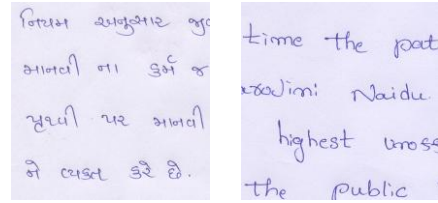 નિયમ અનુસાર જીવ
માનવી ના કર્મ જ
પૃથ્વી પર માનવી
ને વ્યક્ત કરે છે.
time the pat
arojini Naidu
highest
the public